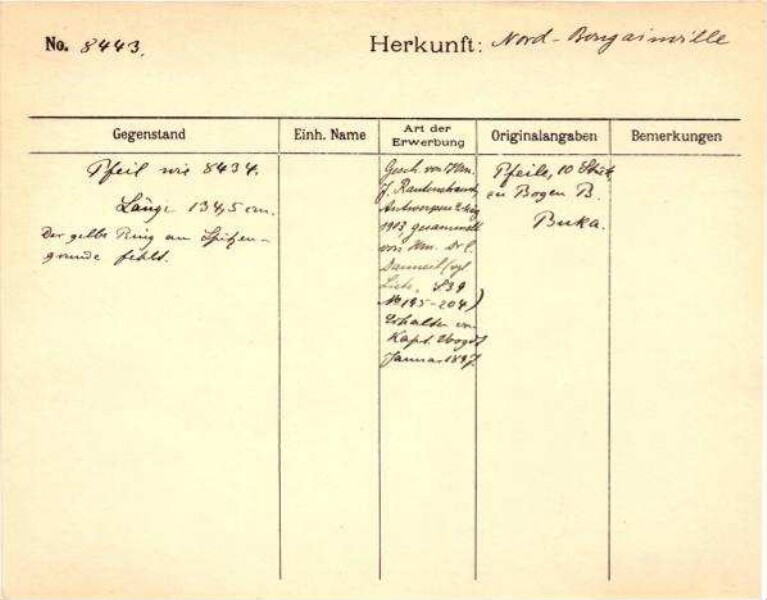 No. 8443.
Herkunft: Nord-Bougainville
Gegenstand
Einh. Name
Art der Erwerbung
Originalangaben
Bemerkungen
Pfeil wie 8434.
Länge 134,5 cm.
Der gelbe Ring am Spitzen-
grunde fehlt.
Gesch. von Hrn.
J. Rautenstrauch,
Antwerpen
1903, gesammelt
von Hrn. Dr C.
Danneil (vgl
Liste, S 39
No 195-204)
Erhalten von
Kapt. Voogdt
Januar 1897.
Pfeile, 10 Stück
zu Bogen B.
Buka.